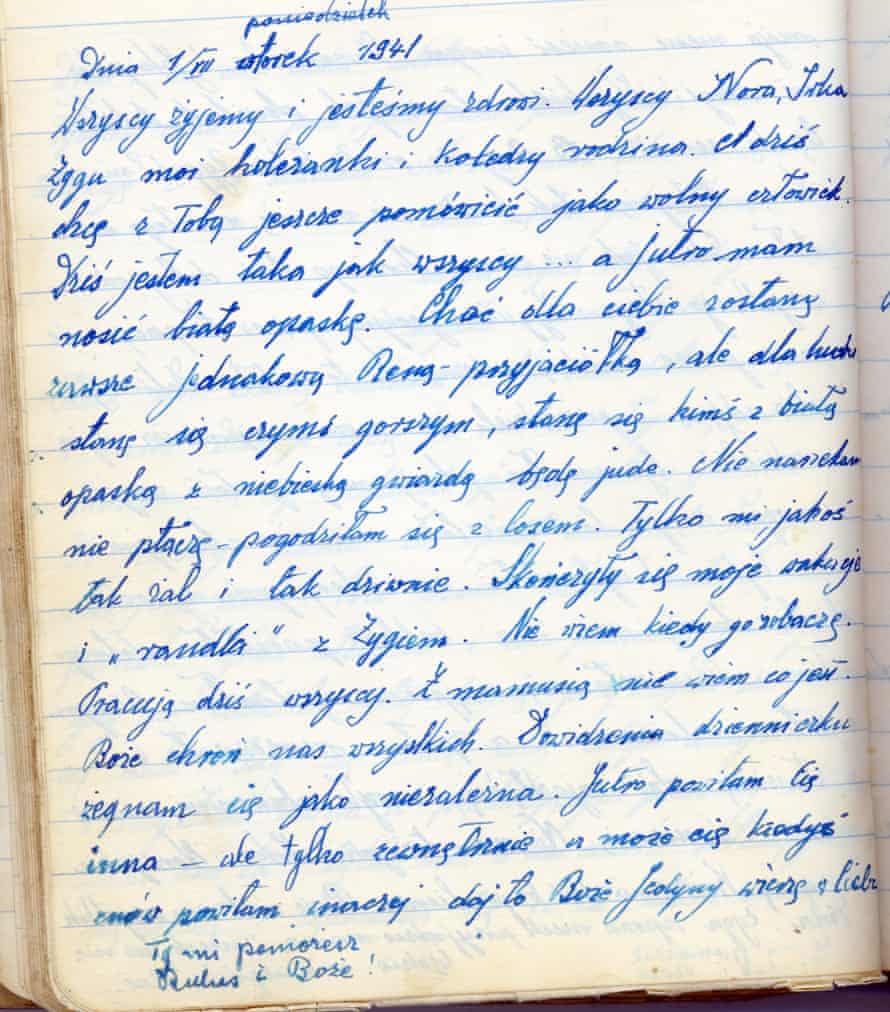 poniedziałek
Dnia 1/VII wtorek 1941
Wszyscy żyjemy i jesteśmy zdrowi. Wszyscy Nora, Irka
Zygu moi koleżanki i koledzy rodzina. A dziś
chcę z Tobą jeszcze pomówicić jako wolny człowiek.
Dziś jestem taka jak wszyscy ... a jutro mam
nosić białą opaskę. Choć dla ciebie zostanę
zawsze jednakową Reną - przyjaciółką, ale dla
stanę się czymś gorszym, stanę się kimś z białą
opaską z niebieską gwiazdą będę jude. Nie narzekam
nie płaczę - pogodziłam się z losem. Tylko mi jakoś
tak żal i tak dziwnie. Skończyły się moje wakacje
i „randki" z Zygiem. Nie wiem kiedy go zobaczę.
Pracują dziś wszyscy. Z mamusią nie wiem co jest.
Boże chroń nas wszystkich. Dowidzenia dzienniczku
żegnam cię jako niezależna. Jutro powitam Cię
inna - ale tylko zewnętrznie a może cię kiedyś
znów powitam inaczej daj to Boże Jedyny wierzę w
Ty mi pomożesz
Bulus i Boże!